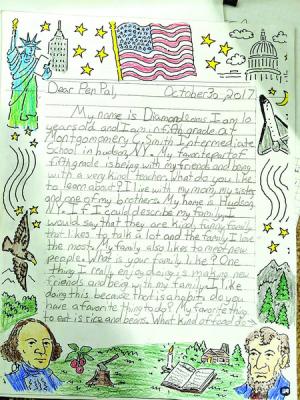 Dear Pen Pal,
October 30, 2017
My name is Diamond Lewis I am 10
years old and I am in fifth grade at
Montgomery C. Smith Intermediate
School in hudson, NY. My favorite part of
fifth grade is being with my friends and being
with a very kind teacher. What do you like
to learn about? I live with my mom, my sister
and one of my brothers. My home is Hudson,
NY. If I could describe my family I
would say that they are kind, funny, family
that like to talk a lot and the family I love
the most. My family also likes to meet new
people. What is your family like? One
thing I really enjoy doing is making new
friends and being with my family. I like
doing this because that is a habit. do you
have a favorite thing to do? My favorite thing
to eat is rice and beans. What kind of food do